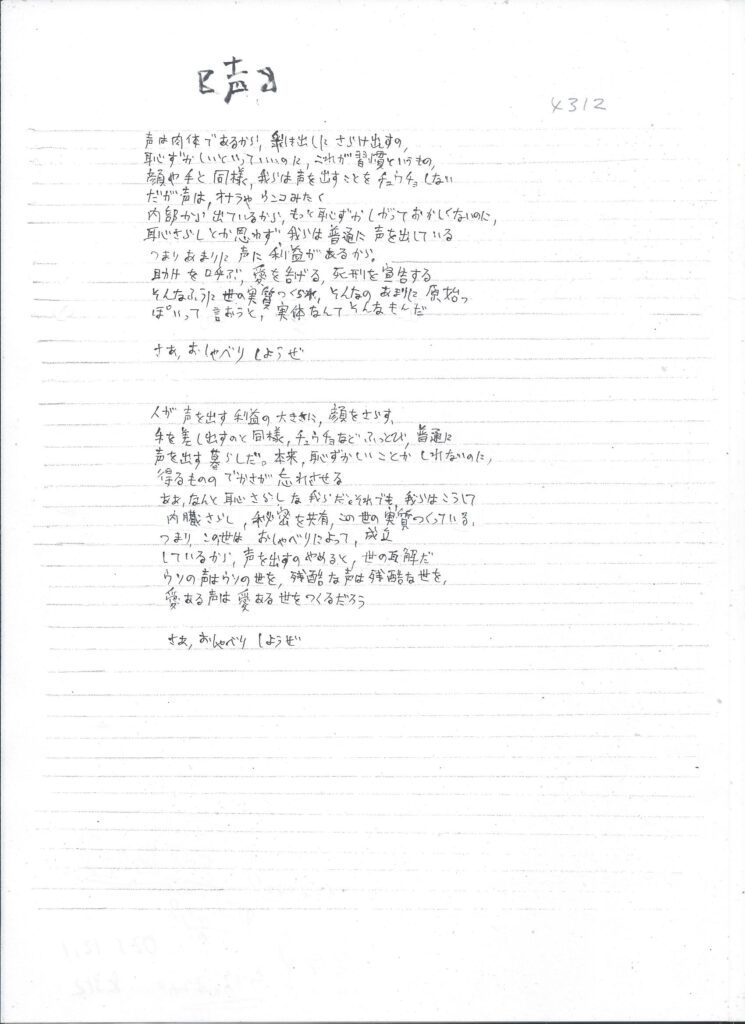 【声】
4312
声は肉体であるから、剥け出しにさらけ出すの、
恥ずかしいといっていいのに、これが習慣というもの、
顔や手と同様、我らは声を出すことをチュウチョしない
だが声は、オナラやウンコみたく
内部から出ているから、もっと恥ずかしがっておかしくないのに、
恥さらしとか思わず、我らは普通に声を出している
つまりあまりに声に利益があるから。
助けを呼ぶ、愛を告げる、死刑を宣告する
そんなふうに世の実質つくられ、そんなのあまりに原始っ
ぽいって言おうと、実体なんてそんなもんだ
さあ、おしゃべりしようぜ
人が声を出す利益の大きさに、顔をさらす、
手を差し出すのと同様、チュウチョなどふっとび、普通に
声を出す暮らしだ。本来、恥ずかしいことかしれないのに、
得るもののでかさが忘れさせる
ああ、なんと恥さらしな我らだ。それでも、我らはこうして
内臓さらし、秘密を共有、この世の実質つくっている、
つまり、この世はおしゃべりによって、成立
しているから、声を出すのやめると、世の瓦解だ
ウソの声はウソの世を、残酷な声は残酷な世を、
愛ある声は愛ある世をつくるだろう
さあ、おしゃべりしようぜ